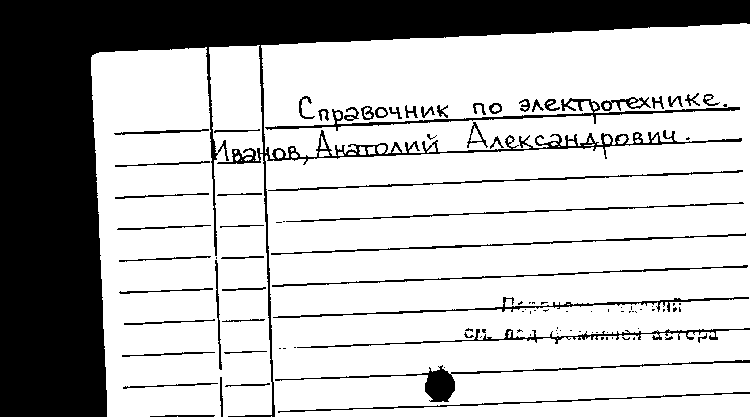 Справочник по электротехнике.
Иванов, Анатолий Александрович.
Перечень изданий
см. под фамилией автора